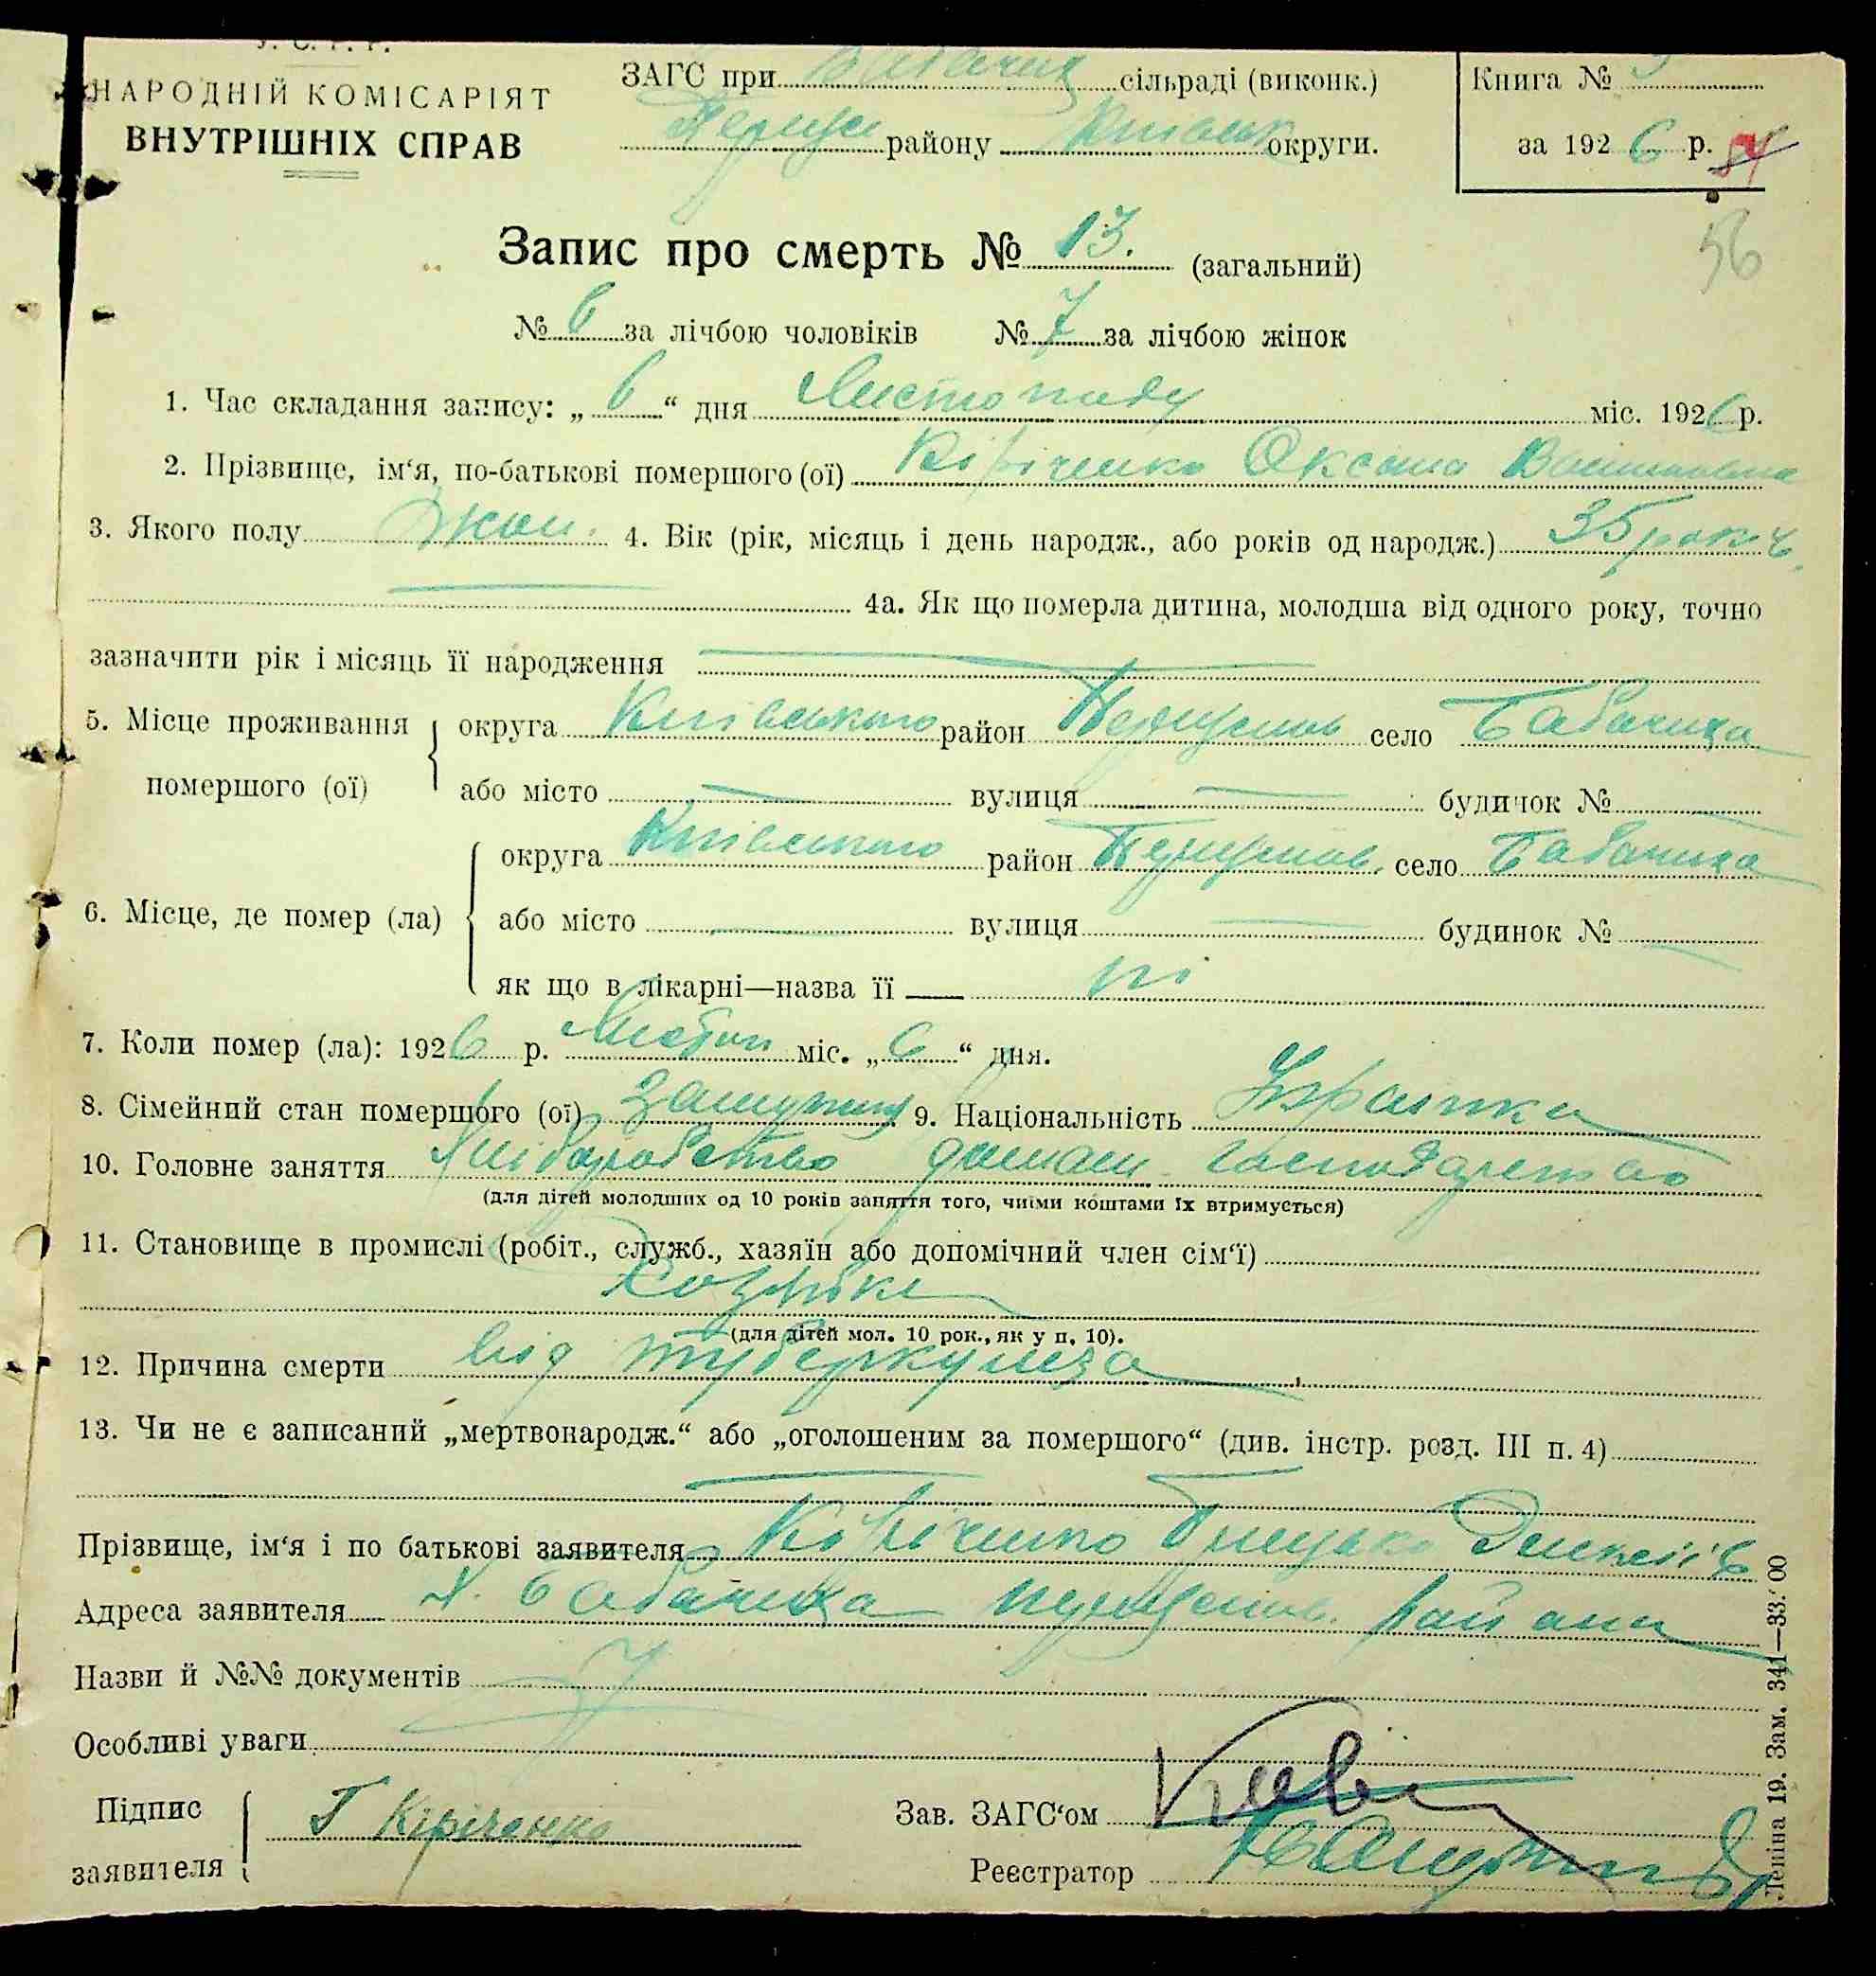 У. С. Р. Р.
НАРОДНІЙ КОМІСАРІЯТ
ВНУТРІШНІХ СПРАВ
ЗАГС при сільраді (виконк.)
району округи.
Книга №
за 1926 р.
56
Запис про смерть № 13. (загальний)
№ 6 за лічбою чоловіків № 7 за лічбою жінок
1. Час складання запису: „6“ дня Листопаду міс. 1926 р.
2. Прізвище, ім‘я, по-батькові помершого (ої) Кіріченко Оксана
3. Якого полу жон. 4. Вік (рік, місяць і день народж., або років од народж.) 35 років
4а. Як що померла дитина, молодша від одного року, точно
зазначити рік і місяць її народження
5. Місце проживання помершого (ої) округа Київського район село Бабачиха
або місто вулиця будинок №
6. Місце, де помер (ла) округа Київського район село Бабачиха
або місто вулиця будинок №
як що в лікарні—назва її — ні
7. Коли помер (ла): 1926 р. міс. „6“ дня.
8. Сімейний стан помершого (ої) 9. Національність
10. Головне заняття Хліборобство домаш. господарство
(для дітей молодших од 10 років заняття того, чиїми коштами їх втримується)
11. Становище в промислі (робіт., служб., хазяїн або допомічний член сім‘ї)
(для дітей мол. 10 рок., як у п. 10).
12. Причина смерти від туберкульза
13. Чи не є записаний „мертвонародж.“ або „оголошеним за помершого“ (див. інстр. розд. III п. 4)
Прізвище, ім‘я і по батькові заявителя Кіріченко Грицько
Адреса заявителя х. Бабачиха району
Назви й №№ документів
Особливі уваги
Підпис заявителя Г Кіріченко
Зав. ЗАГС‘ом
Реєстратор
Леніна 19. Зам. 341—33.‘00